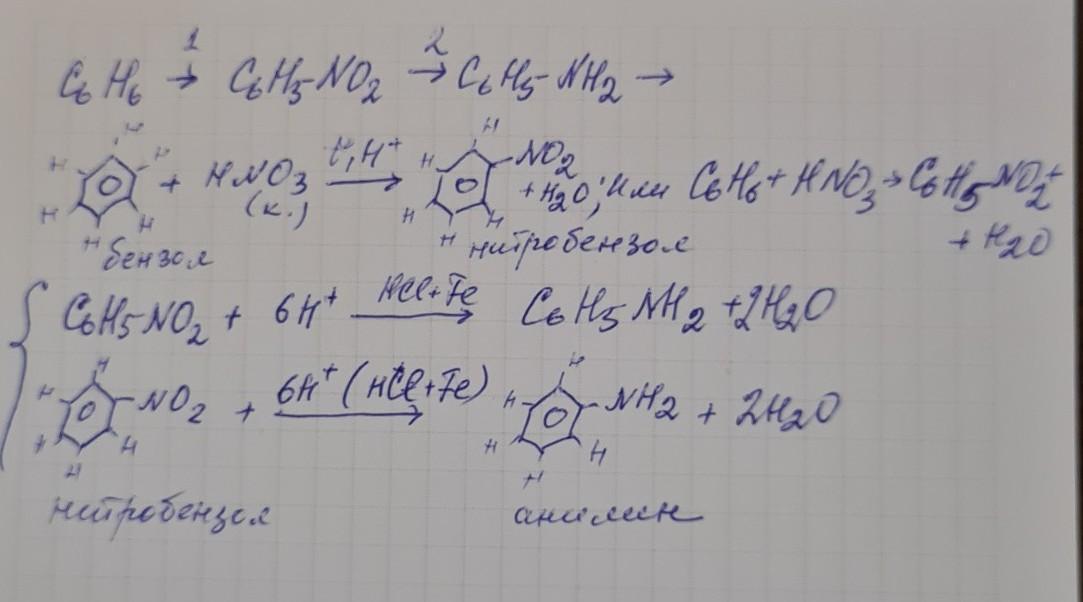 1 2
C6H6 → C6H5-NO2 → C6H5-NH2 →
H H H H H H + HNO3 (к.) t°, H+ → H H H H H NO2 + H2O; или C6H6 + HNO3 → C6H5NO2 + + H2O
бензол нитробензол
C6H5NO2 + 6H+ HCl+Fe → C6H5NH2 + 2H2O
H H H H H NO2 + 6H+ (HCl+Fe) → H H H H H NH2 + 2H2O
нитробензол анилин